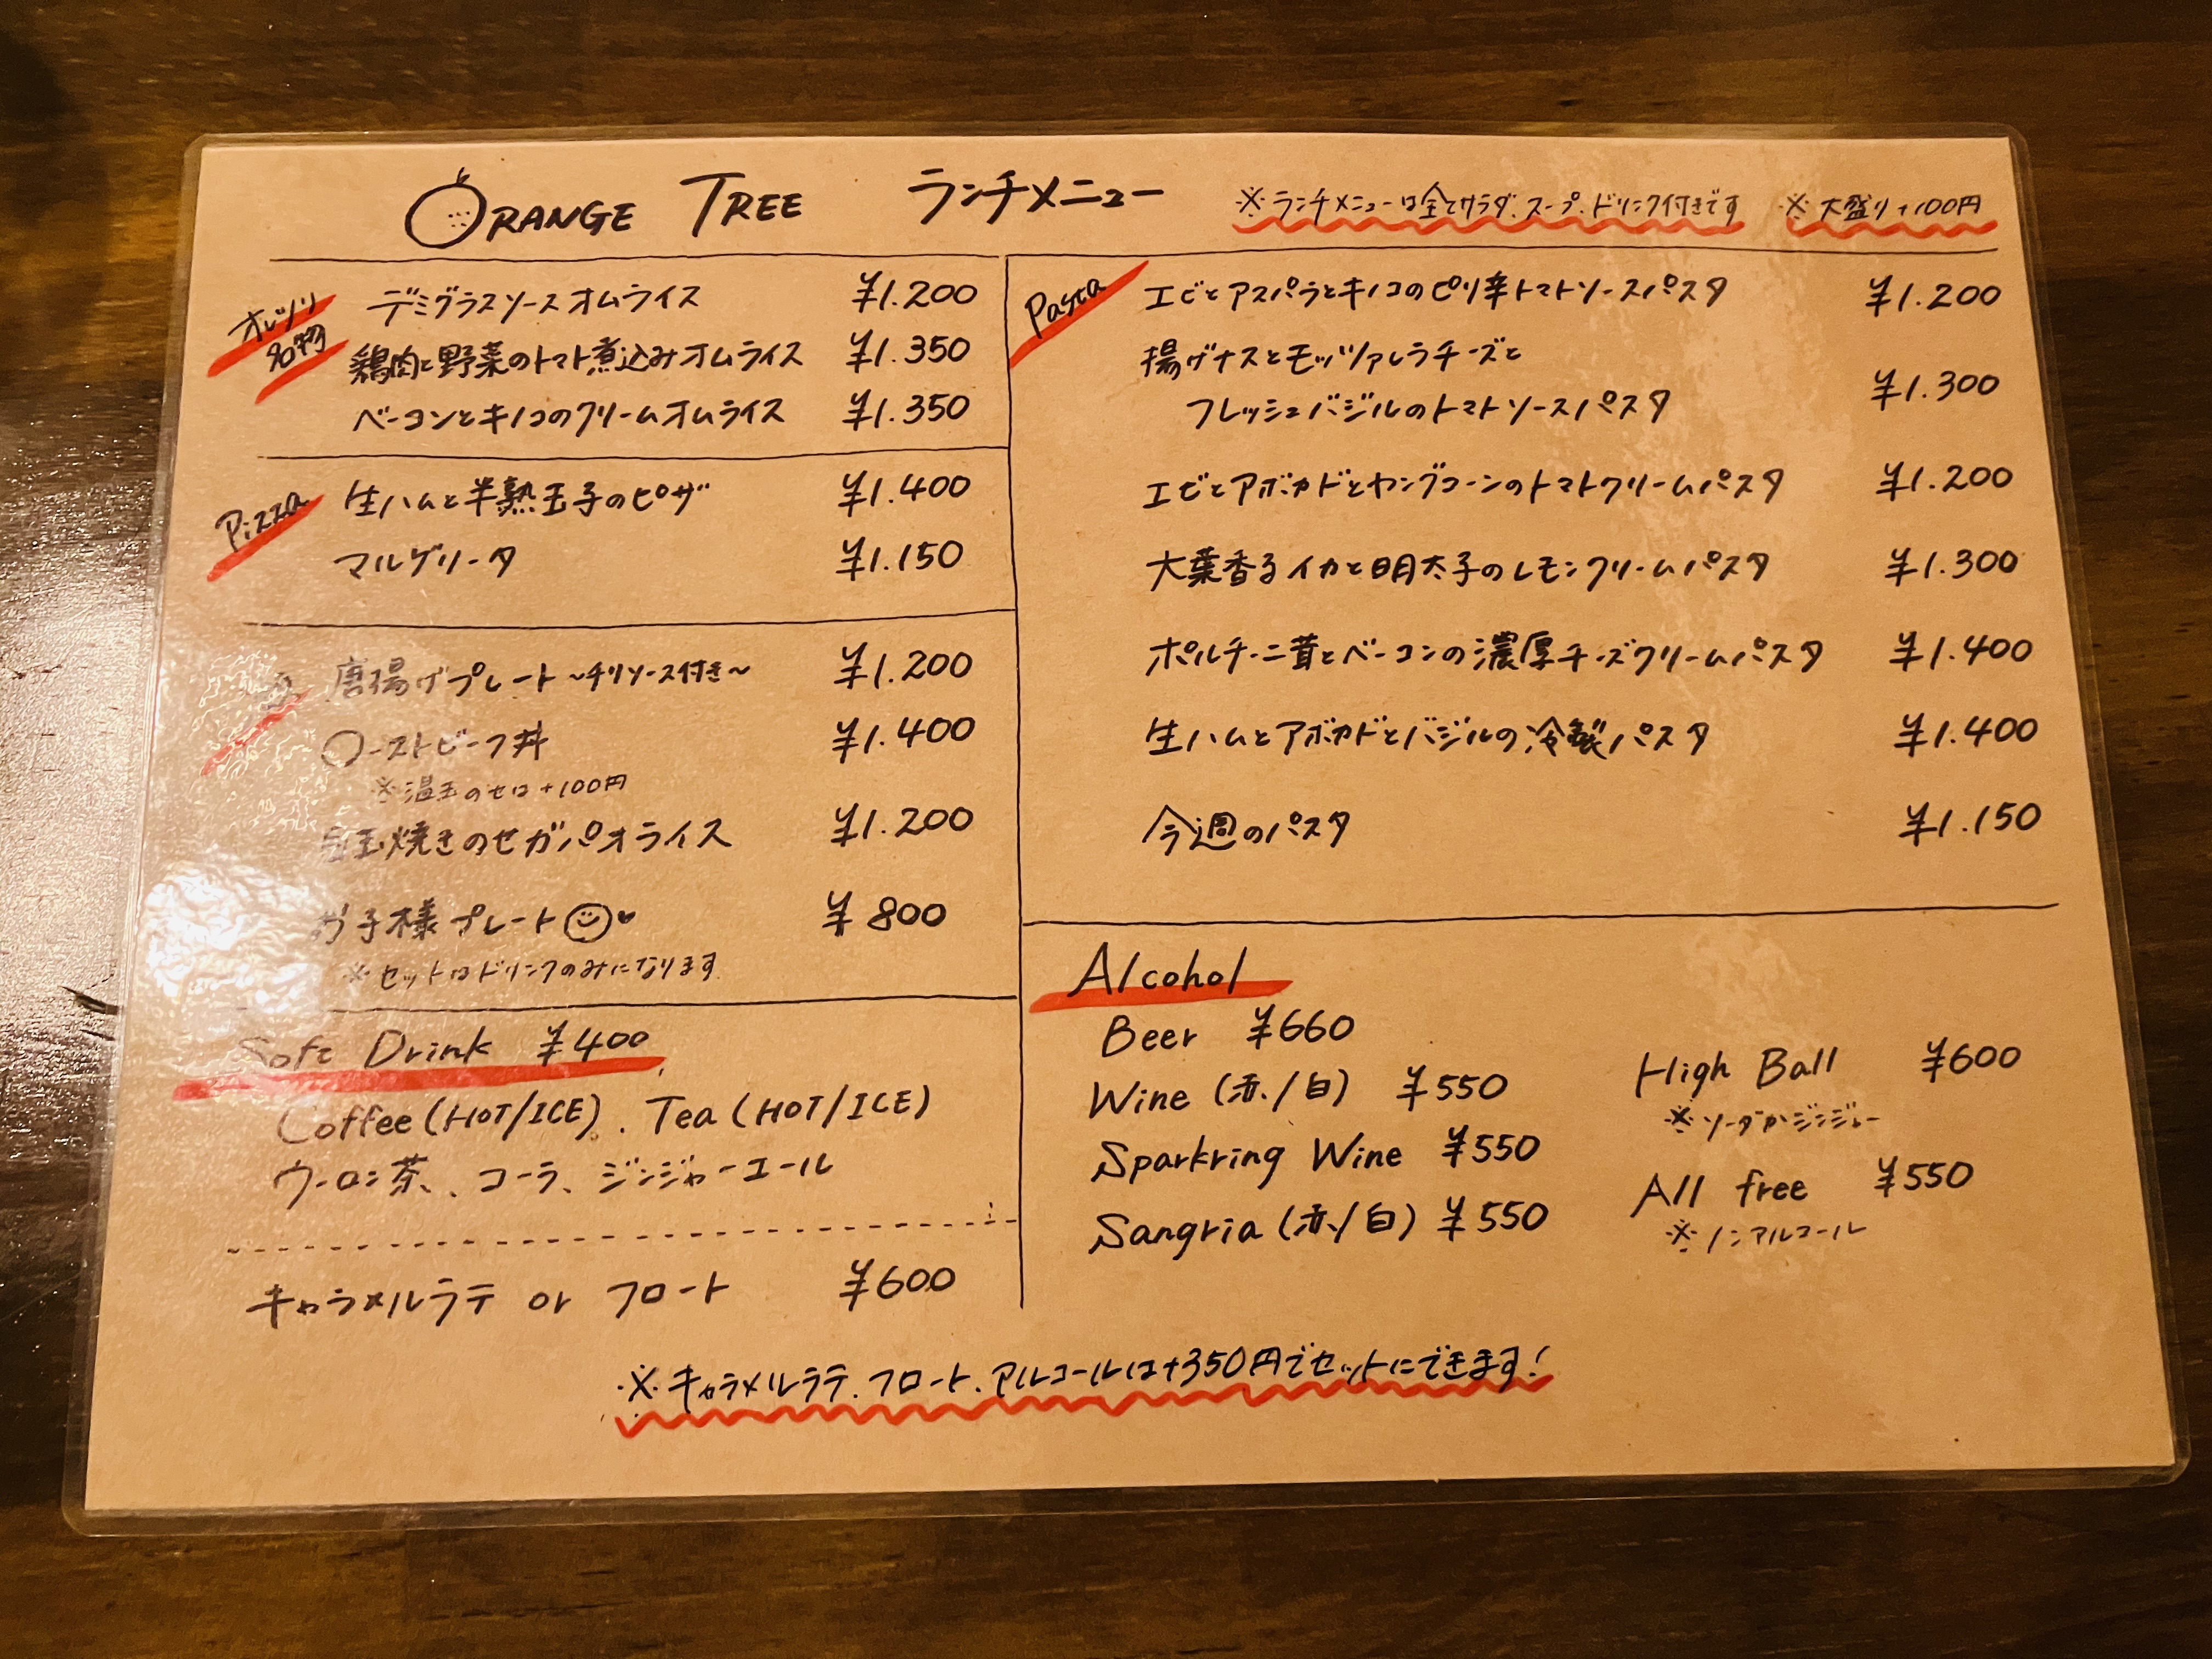 ORANGE TREE ランチメニュー ※ランチメニューは全てサラダ、スープ、ドリンク付きです ※大盛り+100円
オレツリ
名物
デミグラスソースオムライス ¥1.200
鶏肉と野菜のトマト煮込みオムライス ¥1.350
ベーコンとキノコのクリームオムライス ¥1.350
Pizza
生ハムと半熟玉子のピザ ¥1.400
マルゲリータ ¥1.150
唐揚げプレート～チリソース付き～ ¥1.200
ローストビーフ丼 ¥1.400
※温玉のせは+100円
目玉焼きのせガパオライス ¥1.200
お子様プレート ¥800
※セットはドリンクのみになります
Soft Drink ¥400
Coffee (HOT/ICE)、Tea (HOT/ICE)
ウーロン茶、コーラ、ジンジャーエール
キャラメルラテ or フロート ¥600
Pasta
エビとアスパラとキノコのピリ辛トマトソースパスタ ¥1.200
揚げナスとモッツァレラチーズと
フレッシュバジルのトマトソースパスタ ¥1.300
エビとアボカドとヤングコーンのトマトクリームパスタ ¥1.200
大葉香るイカと明太子のレモンクリームパスタ ¥1.300
ポルチーニ茸とベーコンの濃厚チーズクリームパスタ ¥1.400
生ハムとアボカドとバジルの冷製パスタ ¥1.400
今週のパスタ ¥1.150
Alcohol
Beer ¥660
Wine (赤/白) ¥550
Sparkring Wine ¥550
Sangria (赤/白) ¥550
High Ball ¥600
※ソーダかジンジャー
All free ¥550
※ノンアルコール
※キャラメルラテ、フロート、アルコールは+350円でセットにできます!